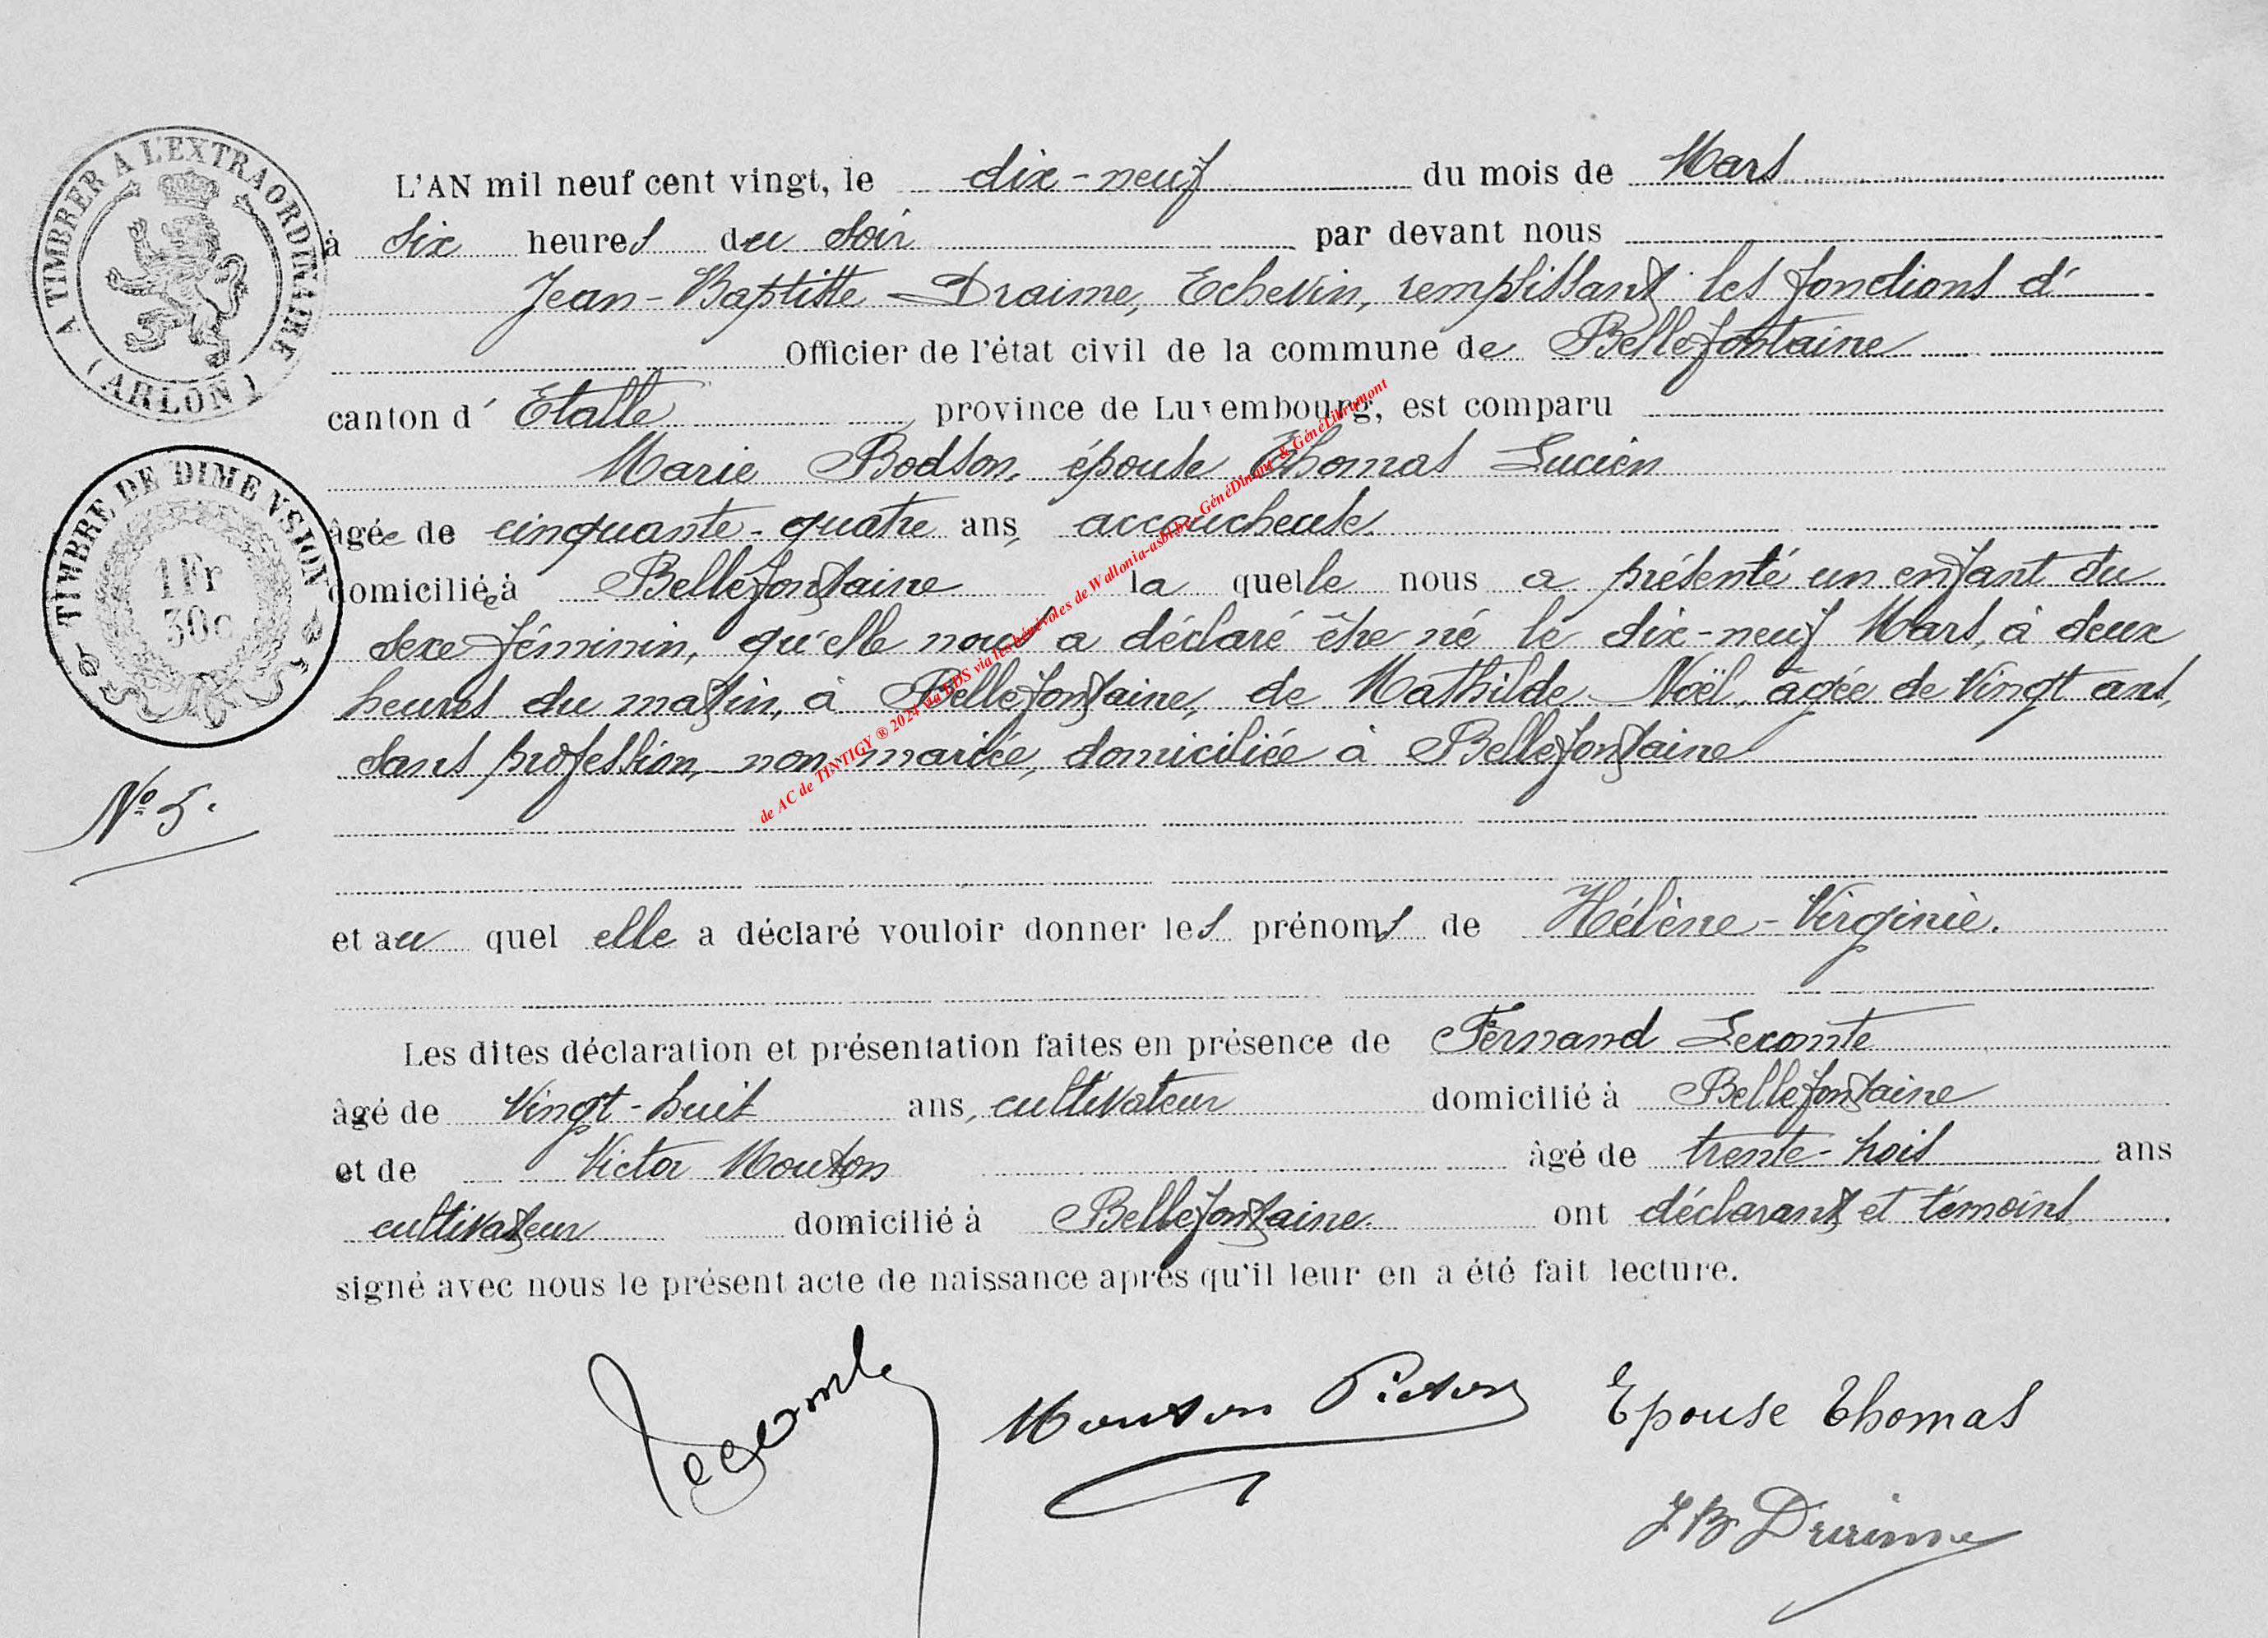 A TIMBRER A L'EXTRAORDINAIRE
(ARLON)
TIMBRE DE DIMENSION
1 Fr
30c
Nº 5.
L'AN mil neuf cent vingt, le dix-neuf du mois de Mars
à six heures du soir par devant nous
Jean-Baptiste Draime, Echevin, remplissant les fonctions d'
Officier de l'état civil de la commune de Bellefontaine
canton d' Etalle, province de Luxembourg, est comparu
Marie Bodson, épouse Thomas Lucien
âgée de cinquante-quatre ans, accoucheuse.
domiciliée à Bellefontaine la quelle nous a présenté un enfant du
sexe féminin, qu'elle nous a déclaré être né le dix-neuf Mars, à deux
heures du matin, à Bellefontaine, de Mathilde Noël, âgée de vingt ans,
sans profession, non mariée, domiciliée à Bellefontaine
et au quel elle a déclaré vouloir donner les prénoms de Hélène-Virginie.
Les dites déclaration et présentation faites en présence de Fernand Lecomte
âgé de vingt-huit ans, cultivateur domicilié à Bellefontaine
et de Victor Mouton âgé de trente-trois ans
cultivateur domicilié à Bellefontaine. ont déclarant et témoins
signé avec nous le présent acte de naissance après qu'il leur en a été fait lecture.
Lecomte
Mouton Victor
Epouse Thomas
J B Draime
de AC de TINTIGY ® 2024 via LDS via les bénévoles de Wallonia-asbl.be, GénéDinant & GénéLibramont